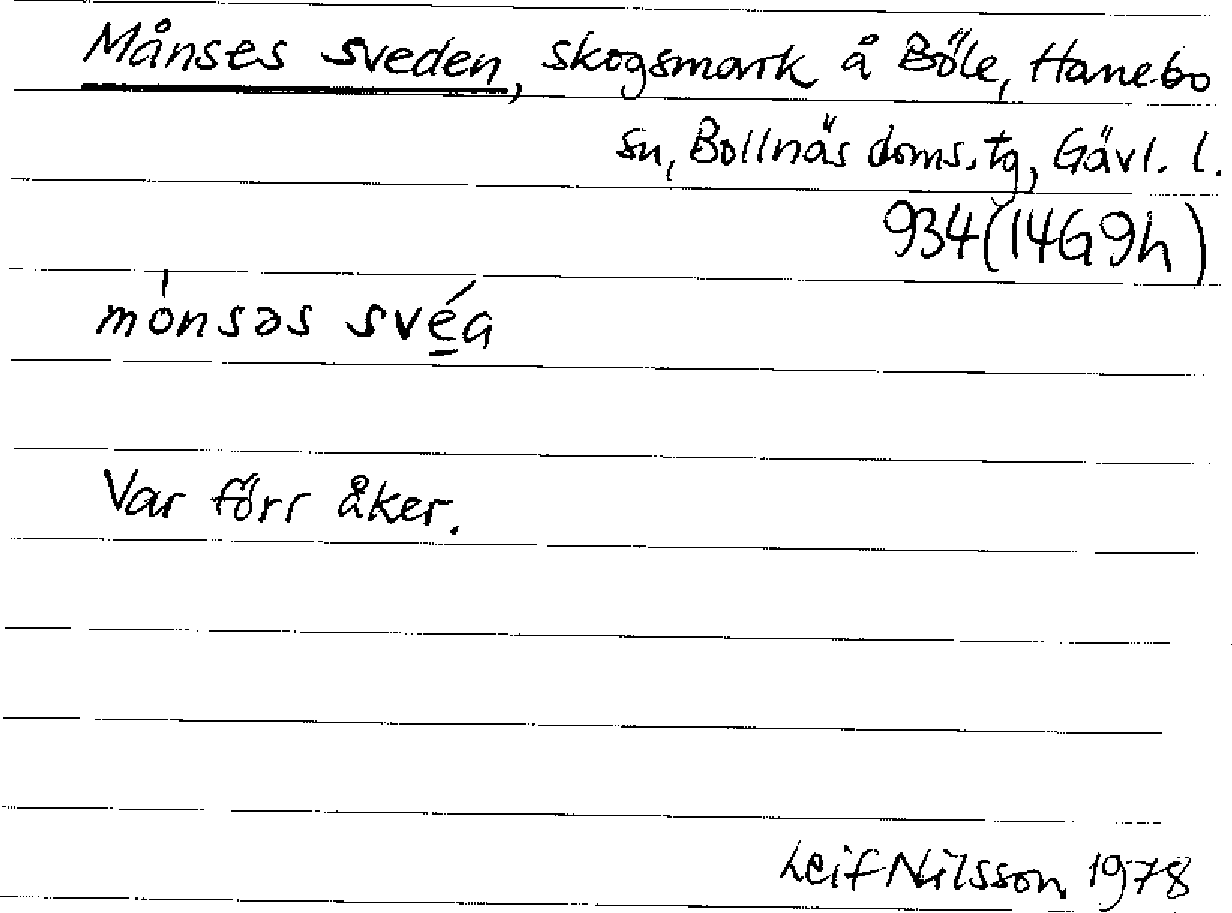 Månses sveden, skogsmark å Böle, Hanebo
sn, Bollnäs doms. tg, Gävl. l.
934 (14G9h)
mónsəs své̲a
Var förr åker.
Leif Nilsson 1978